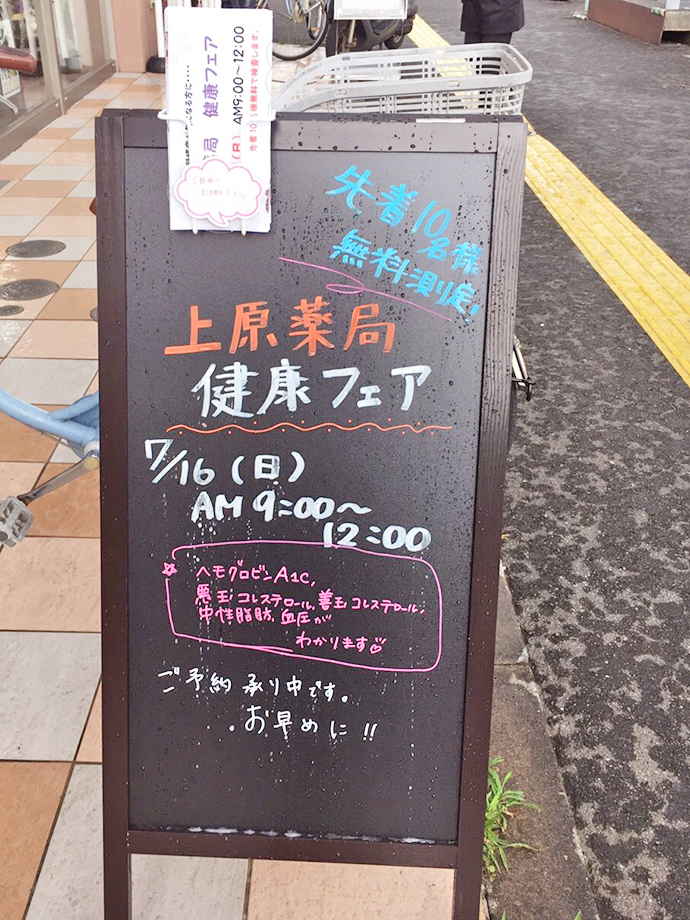 健康フェア
AM9:00～12:00
先着10名様
無料測定、
上原薬局
健康フェア
7/16(日)
AM 9:00～
12:00
ヘモグロビンA1C、
悪玉コレステロール、善玉コレステロール、
中性脂肪、血圧が
わかります♡
ご予約承り中です。
お早めに!!